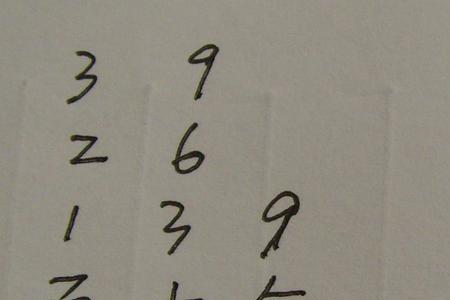 3 9
2 6
1 3 9